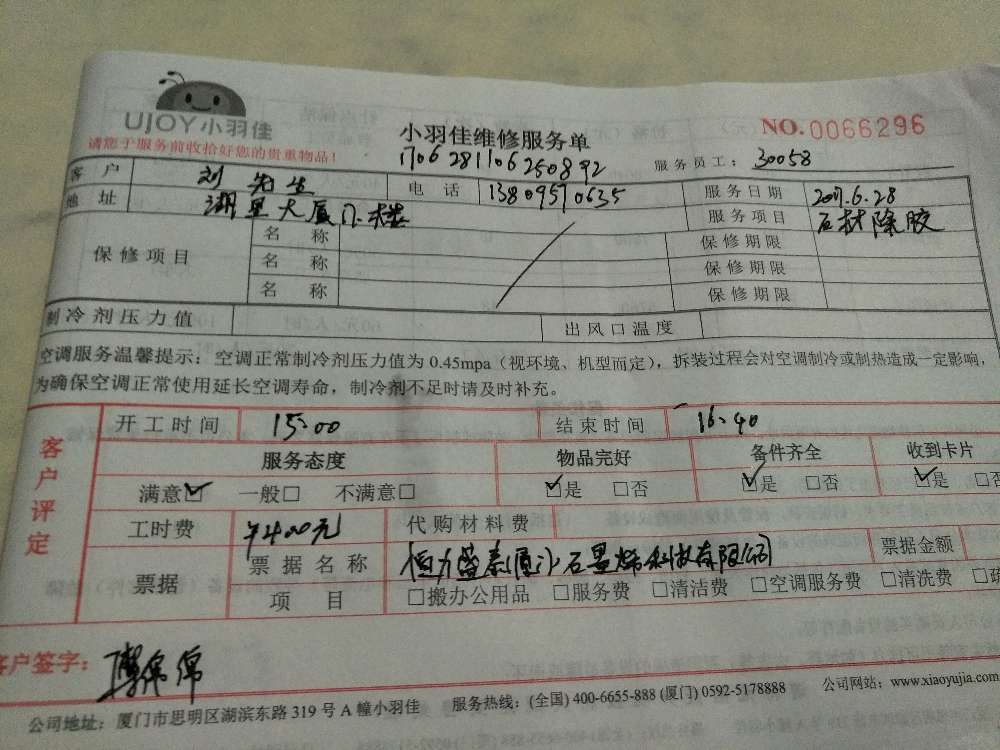 UJOY小羽佳
请您于服务前收拾好您的贵重物品！
小羽佳维修服务单
NO.0066296
1706281106250892
服务员工：30058
客户 刘先生 电话 13809570635 服务日期 2017.6.28
地址 湖里大厦门楼 服务项目 石材除胶
保修项目 名称 保修期限
名称 保修期限
名称 保修期限
制冷剂压力值 出风口温度
空调服务温馨提示：空调正常制冷剂压力值为0.45mpa（视环境、机型而定），拆装过程会对空调制冷或制热造成一定影响，
为确保空调正常使用延长空调寿命，制冷剂不足时请及时补充。
客户评定
开工时间 15:00 结束时间 16:40
服务态度 物品完好 备件齐全 收到卡片
满意☑ 一般□ 不满意□ ☑是 □否 ☑是 □否 ☑是 □否
工时费 ¥400元 代购材料费
票据 票据名称 恒力盛泰(厦门)石墨烯科技有限公司 票据金额
项目 □搬办公用品 □服务费 □清洁费 □空调服务费 □清洗费 □疏
客户签字：
公司地址：厦门市思明区湖滨东路319号A幢小羽佳 服务热线：(全国) 400-6655-888 (厦门) 0592-5178888 公司网站：www.xiaoyujia.com